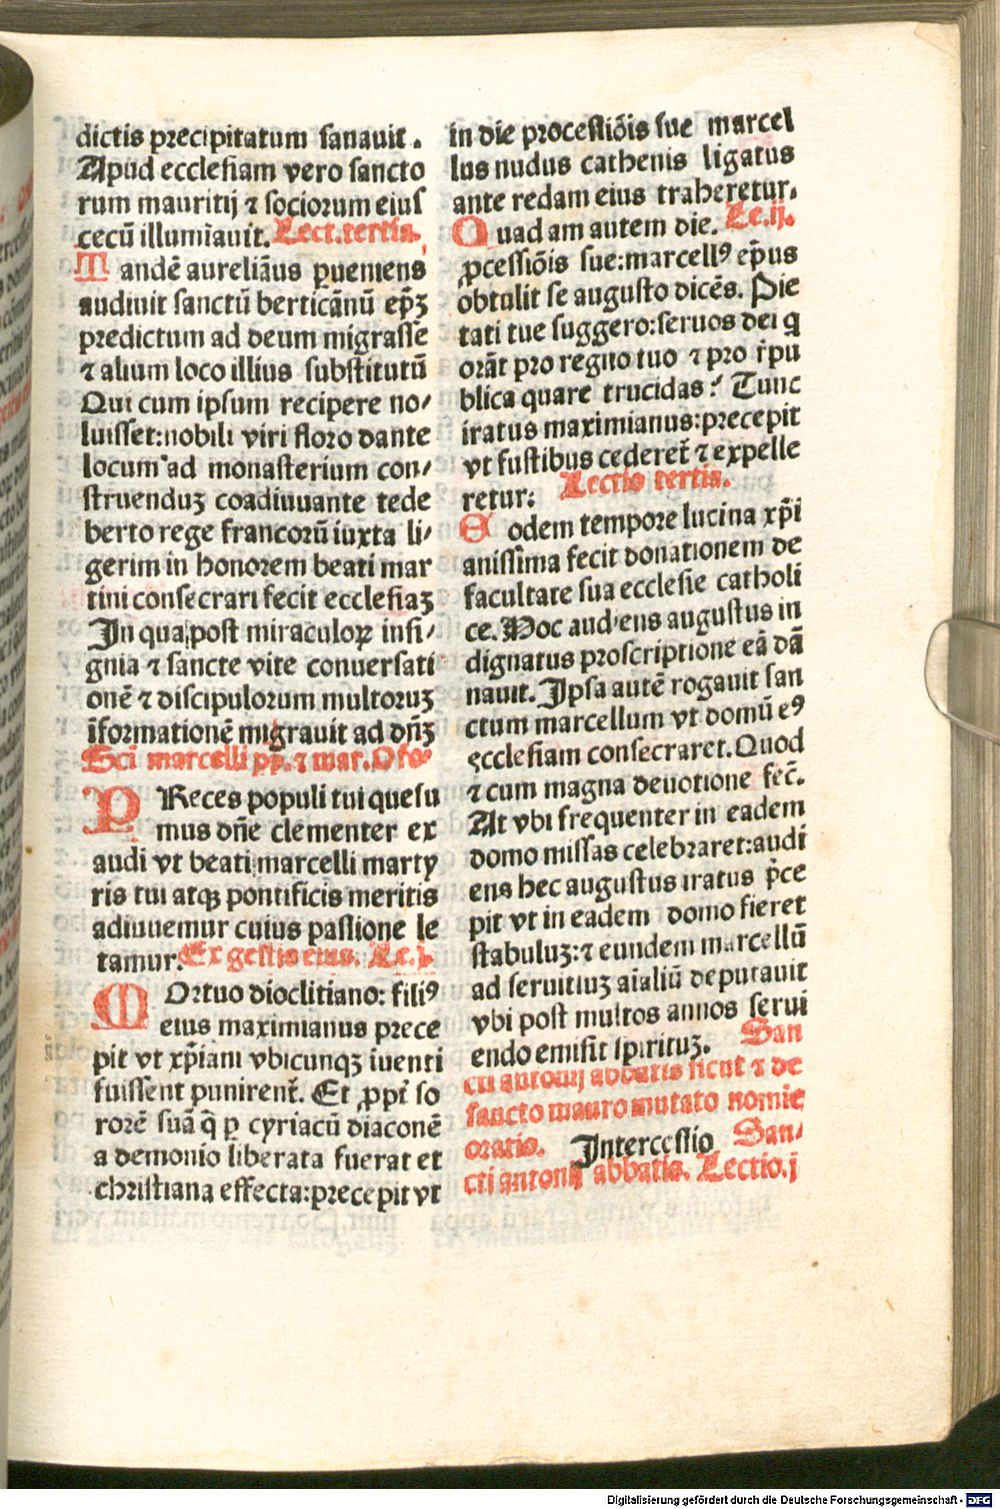 dictis precipitatum sanauit.
Apud ecclesiam vero sancto
rum mauritij ⁊ sociorum eius
cecū illuminauit. Lect. tertia.
Tandē aurelianus ꝑueniens
audiuit sanctū berticānū ep̄ꝫ
predictum ad deum migrasse
⁊ alium loco illius substitutū
Qui cum ipsum recipere no/
luisset: nobili viri floro dante
locum ad monasterium con/
struenduꝫ coadiuuante tede
berto rege francorū iuxta li/
gerim in honorem beati mar
tini consecrari fecit ecclesiaꝫ
In qua post miraculoꝝ insi/
gnia ⁊ sancte vite conuersati
onē ⁊ discipulorum multoruꝫ
īformationē migrauit ad dn̄ꝫ
Sci marcelli pp. ⁊ mar. Oro
PReces populi tui quesu
mus dn̄e clementer ex
audi vt beati marcelli marty
ris tui atqꝫ pontificis meritis
adiuuemur cuius passione le
tamur. Ex gestis eius. Le. j.
MOrtuo dioclitiano: filiꝰ
eius maximianus prece
pit vt xp̄iani vbicunqꝫ iuenti
fuissent punirent̄. Et ꝓpt̄ so
rorē suā q̄ ꝑ cyriacū diaconē
a demonio liberata fuerat et
christiana effecta: precepit vt
in die processiōis sue marcel
lus nudus cathenis ligatus
ante redam eius traheretur.
Quadam autem die. Le. ij.
ꝓcessiōis sue: marcellꝰ ep̄us
obtulit se augusto dicēs. Pie
tati tue suggero: seruos dei q
orāt pro regno tuo ⁊ pro r̄pu
blica quare trucidas? Tunc
iratus maximianus: precepit
vt fustibus cederet̄ ⁊ expelle
retur: Lectio tertia.
Eodem tempore lucina xp̄i
anissima fecit donationem de
facultate sua ecclesie catholi
ce. Hoc audiens augustus in
dignatus proscriptione eā dā
nauit. Ipsa autē rogauit san
ctum marcellum vt domū eꝰ
ecclesiam consecraret. Quod
⁊ cum magna deuotione fec̄.
At vbi frequenter in eadem
domo missas celebraret: audi
ens hec augustus iratus p̄ce
pit vt in eadem domo fieret
stabuluꝫ: ⁊ eundem marcellū
ad seruitiuꝫ aīaliū deputauit
vbi post multos annos serui
endo emisit spirituꝫ. San
cti antonij abbatis sicut ⁊ de
sancto mauro mutato nomīe
oratio. Intercessio San/
cti antonij abbatis. Lectio. j
Digitalisierung gefördert durch die Deutsche Forschungsgemeinschaft - DFG